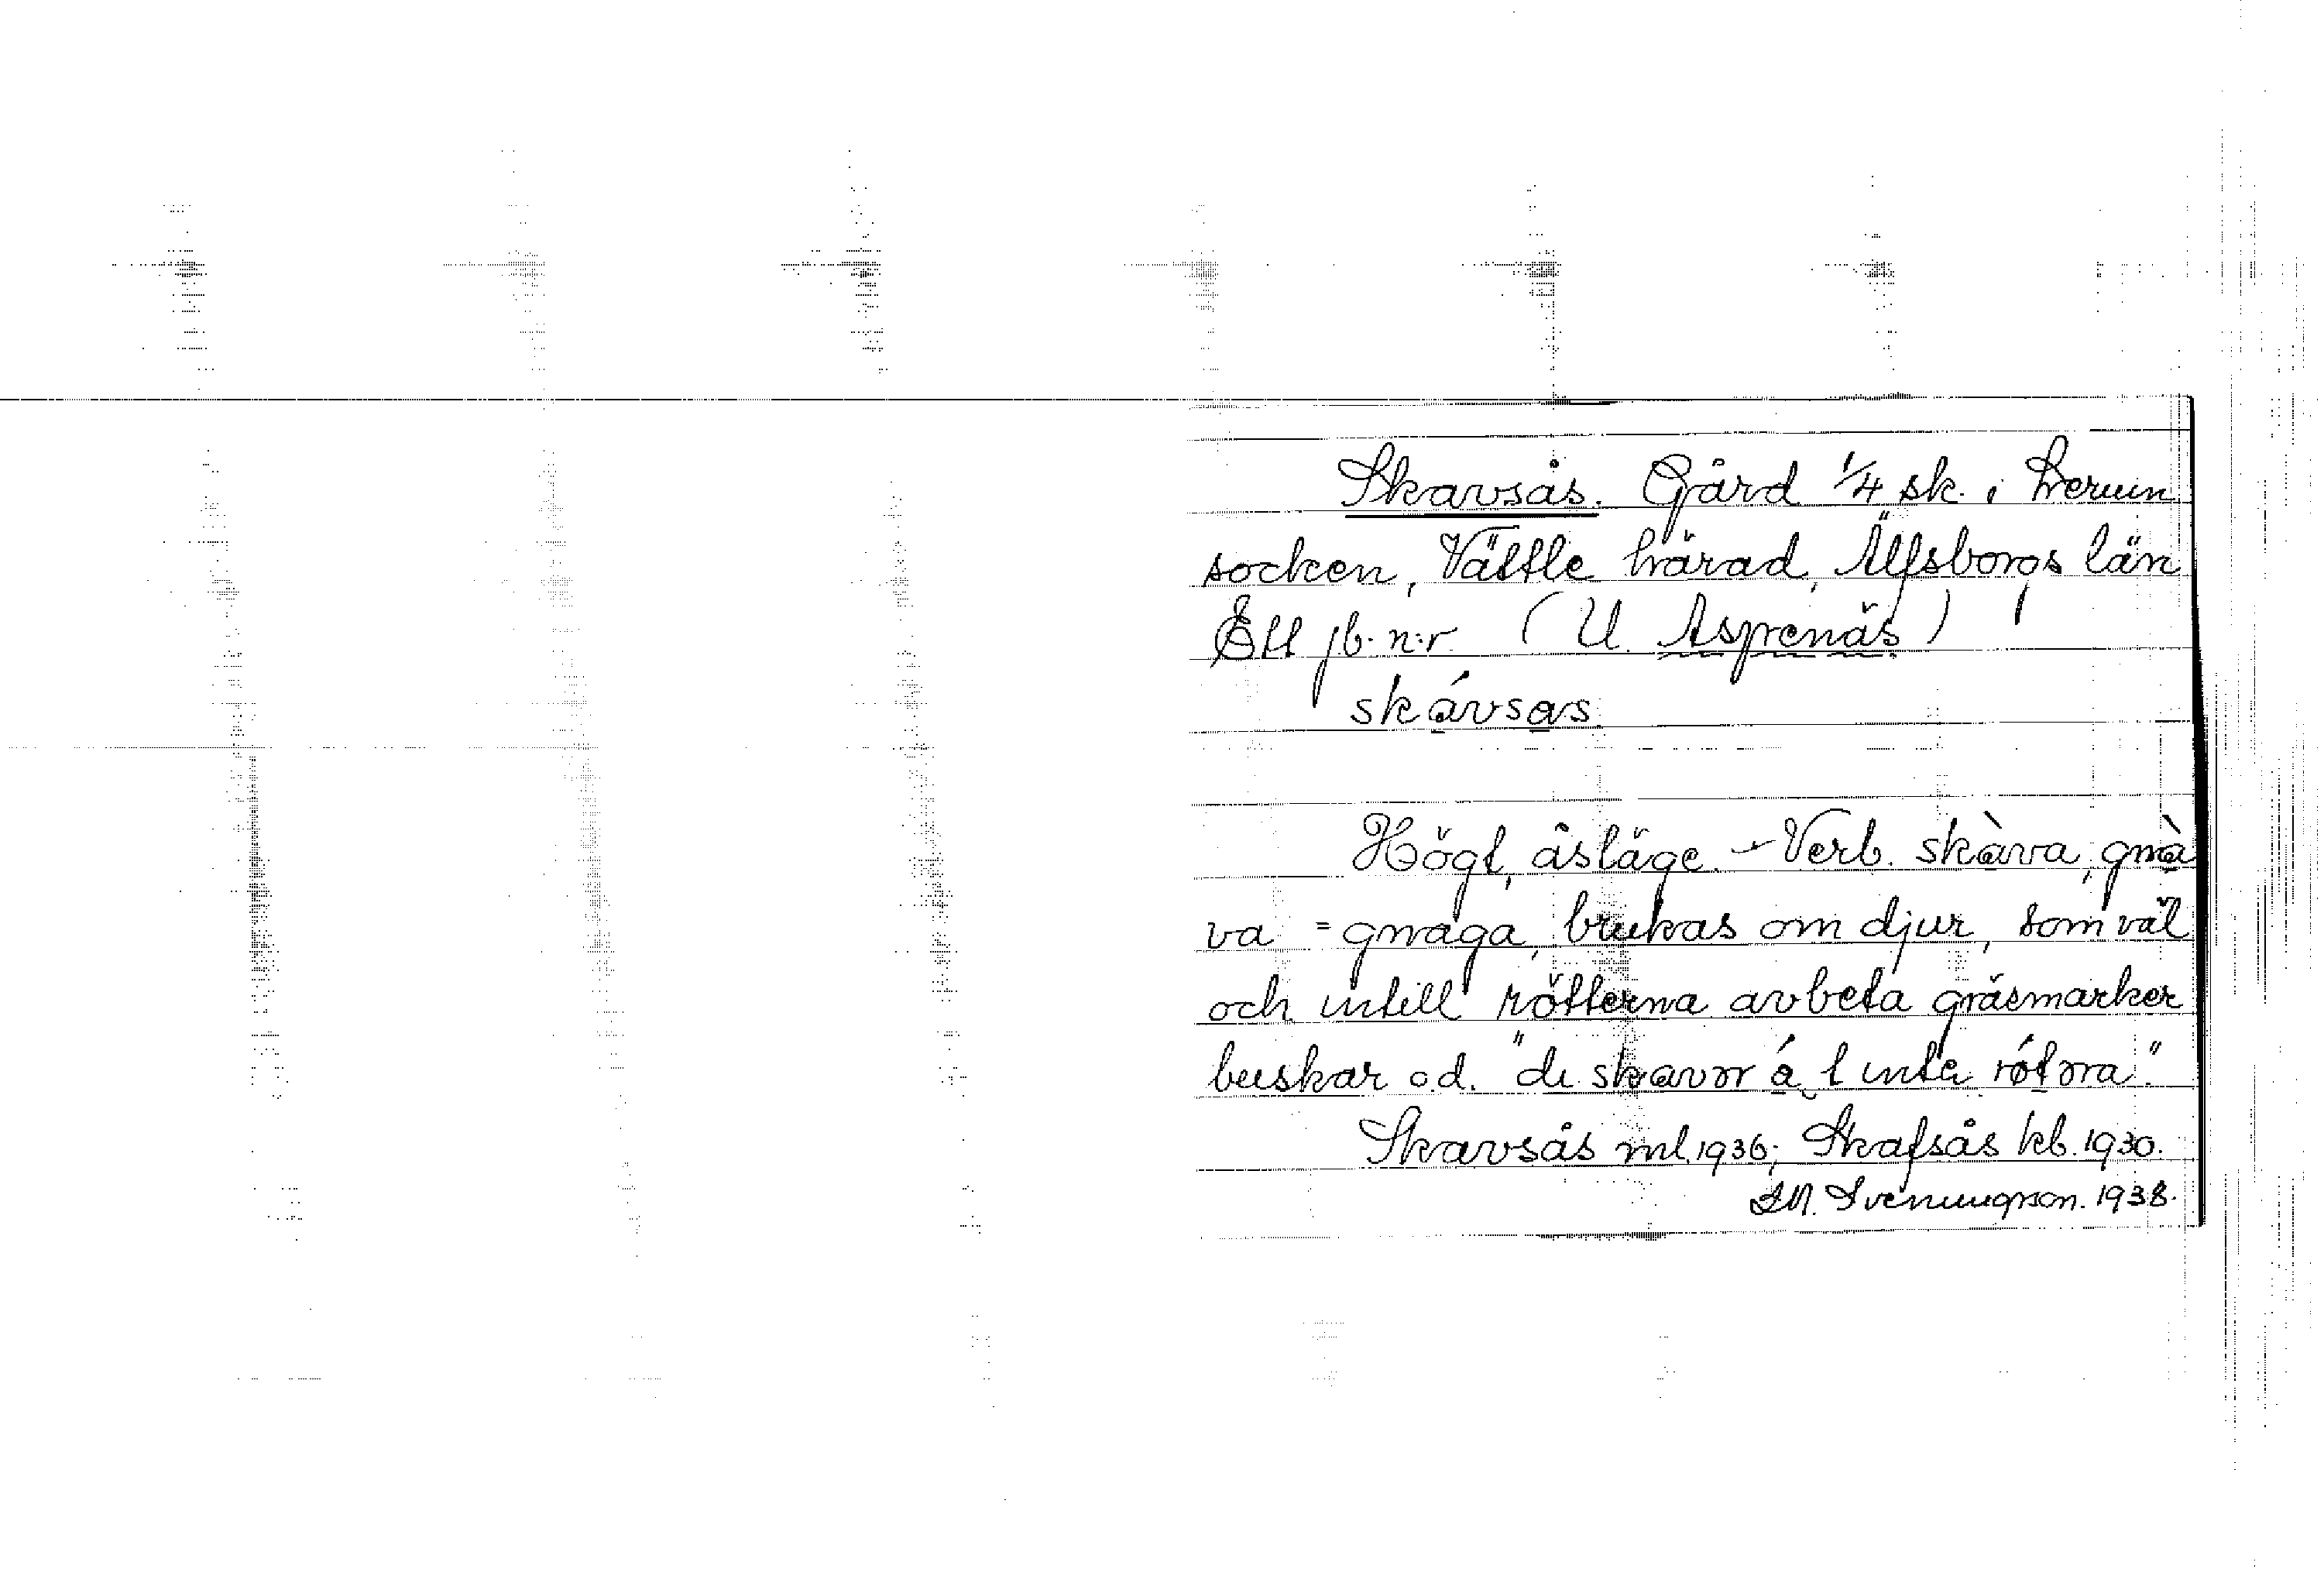 Skavsås. Gård 1/4 sk. i Lerum
socken, Vättle härad, Älfsborgs län
Ett jb. n:r (U. Aspenäs)
skávsas
Högt, åsläge. - Verb. skàva, gnà
va = gnaga, brukas om djur, som väl
och intill rötterna avbeta gräsmarker
buskar o.d. "di skavor á t inte rótora".
Skavsås ml. 1936; Skafsås kb. 1930.
Sveningson. 1938.